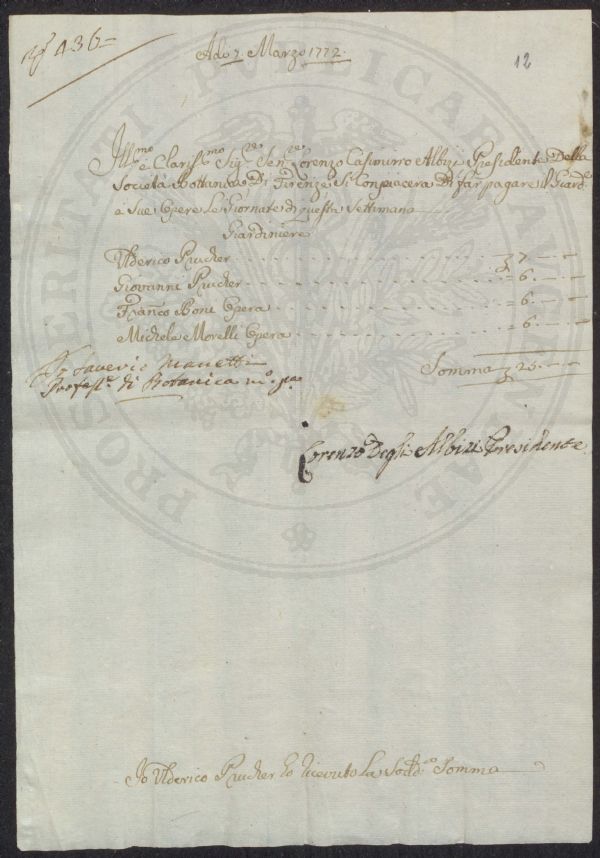 N.º 436
Adò 7 Marzo 1772.
12
Ill.mo e Clariss.mo Sig.re Sen.re Lorenzo Casimirro Albizi Presidente Della
Società Bottanica Di Firenze Si Conpiacera Di far pagare Il Giard.e
e Sue Opere Le Giornate di questa Settimana
Giardiniere
Ulderico Prucher 7. -
Giovanni Prucher = 6. -
Franco Boni Opera = 6. -
Michele Morelli Opera = 6. -
Somma 25. -
Saverio Manetti
Profess.e di Botanica m.o p.a
Lorenzo Degli Albizi Presidente
Io Ulderico Prucher ho riceuto La Sodd.a Somma
PROSPERITATI PUBLICAE AUGENDAE